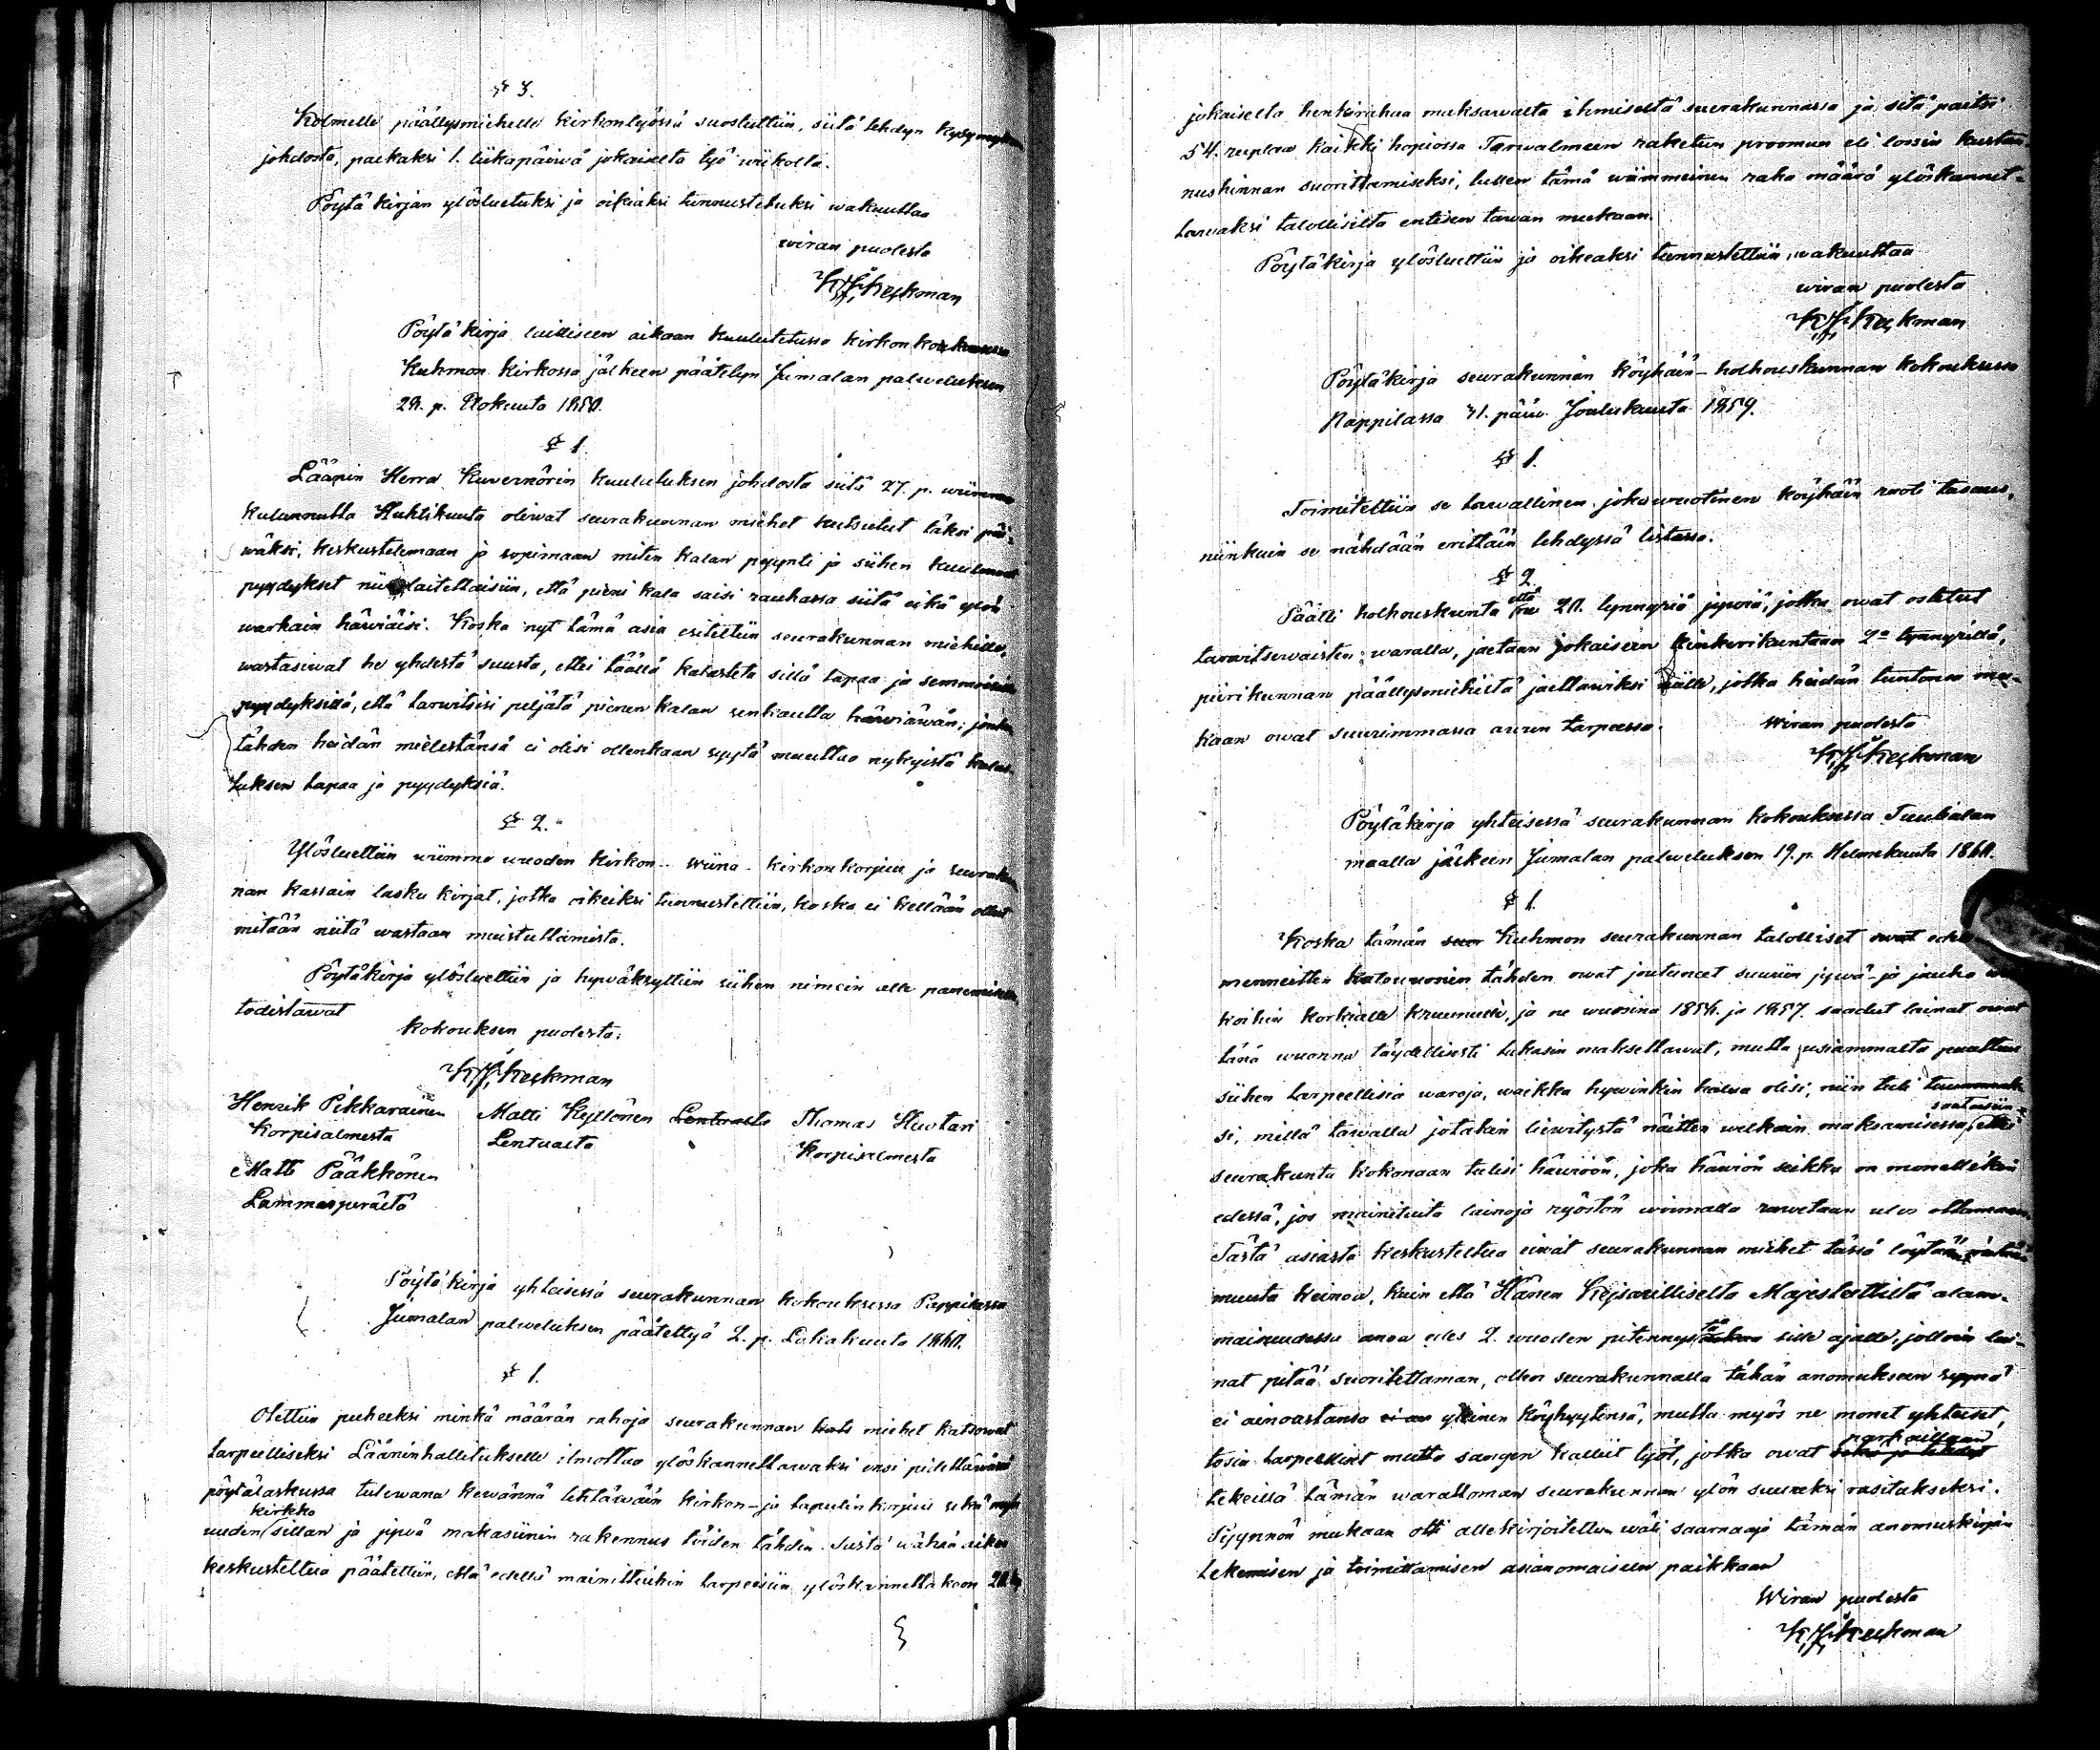 § 3.
Kolmelle päällysmiehelle kirkontyössä suostuttiin, siitä tehdyn kysymyksen
johdosta, palkaksi 1. liikapäiwä jokaiselta työ wiikolta.
Pöytäkirjan ylösluetuksi ja oikiaksi tunnustetuksi wakuuttaa
wiran puolesta
Keckman
Pöytäkirja lailliseen aikaan kuulutetussa kirkon kokouksessa
Kuhmon kirkossa jälkeen päätetyn Jumalan palweluksen
28. p. Elokuuta
§ 1.
Läänin Herra Kuvernörin kuulutuksen johdosta siitä 27. p. wiimme
kulunnutta Huhtikuuta oliwat seurakunnan miehet kutsutut täksi päi-
wäksi, keskustelemaan ja sopimaan miten kalan pyynti ja siihen kuuluwat
pyydykset niin laitettaisiin, että pieni kala saisi rauhassa siitä eikä ylön
warkain häwiäisi. Koska nyt tämä asia esiteltiin seurakunnan miehille,
wastasiwat he yhdestä suusta, ettei täällä kalasteta sillä tapaa ja semmoisilla
pyydyksillä, että tarwitsisi peljätä pienen kalan senkautta häwiäwän; jonka
tähden heidän mielestänsä ei olisi ollenkaan syytä muuttaa nykyistä kalas-
tuksen tapaa ja pyydyksiä.
§ 2.
Ylösluettiin wiimme wuoden kirkon- wiina- kirkonkorjuu ja seurakun
nan kassain lasku kirjat, jotka oikeiksi tunnustettiin, koska ei kellään ollut
mitään niitä wastaan muistuttamista.
Pöytäkirja ylösluettiin ja hywäksyttiin siihen nimein alle panemisella,
todistawat
kokouksen puolesta:
Keckman
Henrik Pikkarainen Matti Kyllönen Lentualta Thomas Huotari
Korpisalmesta Lentualta Korpisalmesta
Matts Pääkkönen
Lammasperältä
Pöytäkirja yhteisessä seurakunnan kokouksessa Pappilassa
Jumalan palweluksen päätettyä 2. p. Lokakuuta
§ 1.
Otettiin puheeksi minkä määrän rahoja seurakunnan miehet katsowat
tarpeelliseksi Lääninhallitukselle ilmoittaa ylöskannettawaksi ensi pidettäwässä
pöytälaskussa tulewana kewännä tehtäwäin kirkon- ja tapulin korjuu sekä myös
kirkko
uuden sillan ja jywä makasiinin rakennus töiden tähden. Siistä wähän aikaa
keskusteltua päätettiin, että edellä mainittuihin tarpeisiin ylöskannettakoon
jokaiselta henkirahaa maksawalta ihmiseltä seurakunnassa ja sitä paitsi
54. ruplaa kaikki hopiossa Tarwalmeen raketun proomun eli lossin kustan-
nushinnan suorittamiseksi, tullen tämä wiimmeinen raha määrä ylöskannet-
tawaksi talollisilta entisen tawan mukaan.
Pöytäkirja ylösluettiin ja oikeaksi tunnustettiin, wakuuttaa
wiran puolesta
Keckman
Pöytäkirja seurakunnan köyhäin-holhouskunnan kokouksessa
Pappilassa 31. päiw. Joulukuuta 1859.
§ 1.
Toimitettiin se tawallinen jokawuotinen köyhäin ruoti tasaus,
niinkuin se nähdään erittäin tehdyssä listassa.
§ 2.
että
Päätti holhouskunta ne 20. tynnyriä jywiä, jotka owat ostetut
tarwitsewaisten waralla, jaetaan jokaiseen kinkerikuntaan 2a tynnyrillä,
piirikunnan päällysmiehiltä jaettawiksi niille, jotka heidän tuntonsa mu-
kaan owat suurimmassa awun tarpeessa. Wiran puolesta
Keckman
Pöytäkirja yhteisessä seurakunnan kokouksessa Tuuhalan
maalla jälkeen Jumalan palweluksen 19. p. Helmekuuta 1860.
§ 1.
Koska tämän Kuhmon seurakunnan talolliset owat
menneitten katowuosien tähden owat joutuneet suuriin jywä- ja jauho
koihin korkialle kruunulle, ja ne wuosina 1856. ja 1857. saadut lainat owat
tänä wuonna täydellisesti takasin maksettawat, mutta usiammalta puuttuu
siihen tarpeellisia waroja, waikka hywinkin halua olisi, niin tuli
saataisiin
si, millä tawalla jotakin liewitystä näitten welkain maksamisessa, ettei
seurakunta kokonaan tulisi häwiöön, joka häwiön seikka on monellekin
edessä, jos mainituita lainoja ryöstön woimalla ruwetaan ulos ottamaan.
Tästä asiasta keskusteltua eiwät seurakunnan miehet tässä löytän
muuta keinoa, kuin että Hänen Keisarilliselta Majesteetilta alam-
maisuudessa anoa edes 2. wuoden pitennystä sille ajalle, jolloin lai-
nat pitää suoritettaman, ollen seurakunnalla tähän anomukseen syynä
ei ainoastansa yleinen köyhyytensä, mutta myös ne monet yhteiset,
parhaillaan
tosin tarpeelliset mutta sangen kalliit työt, jotka owat
tekeillä tämän warattoman seurakunnan ylön suureksi rasitukseksi.
Pyynnön mukaan otti allekirjoitettu wäli saarnaaja tämän anomuskirjan
tekemisen ja toimittamisen asianomaiseen paikkaan
Wiran puolesta
Keckman